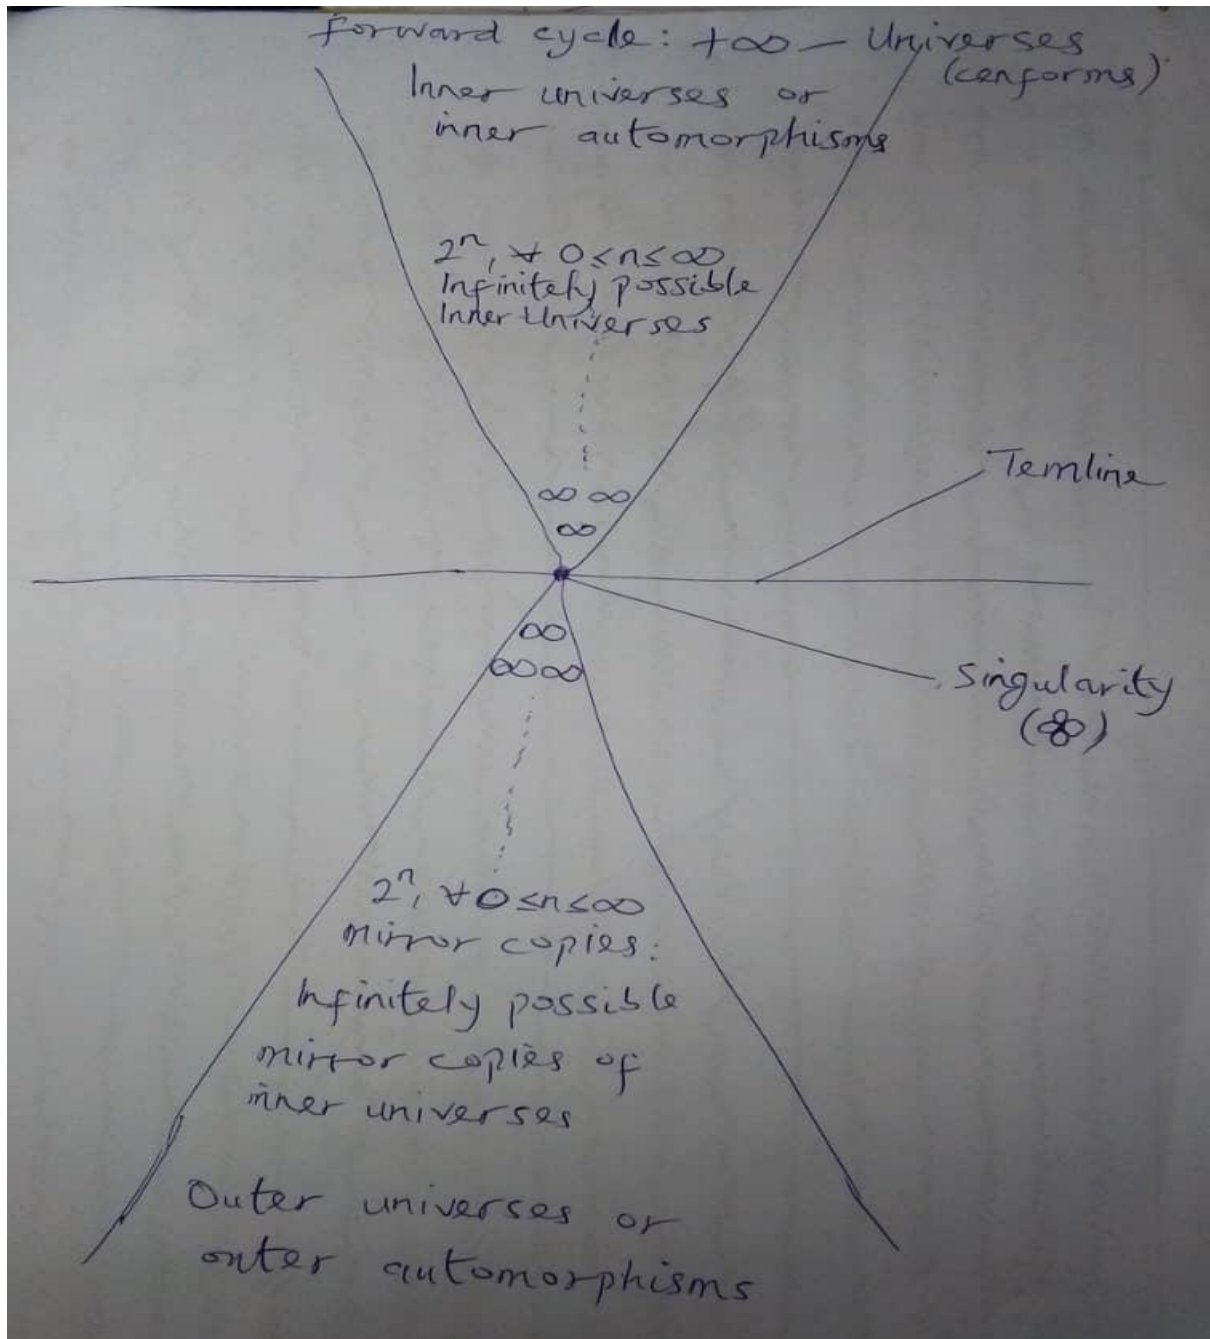 Forward cycle: +∞ – Universes
(cenforms)
Inner universes or
inner automorphisms
2ⁿ, ∀ 0≤n≤∞
Infinitely possible
Inner Universes
Temline
∞ ∞
∞
∞
∞∞
Singularity
2ⁿ, ∀ 0≤n≤∞
mirror copies:
Infinitely possible
mirror copies of
inner universes
Outer universes or
outer automorphisms